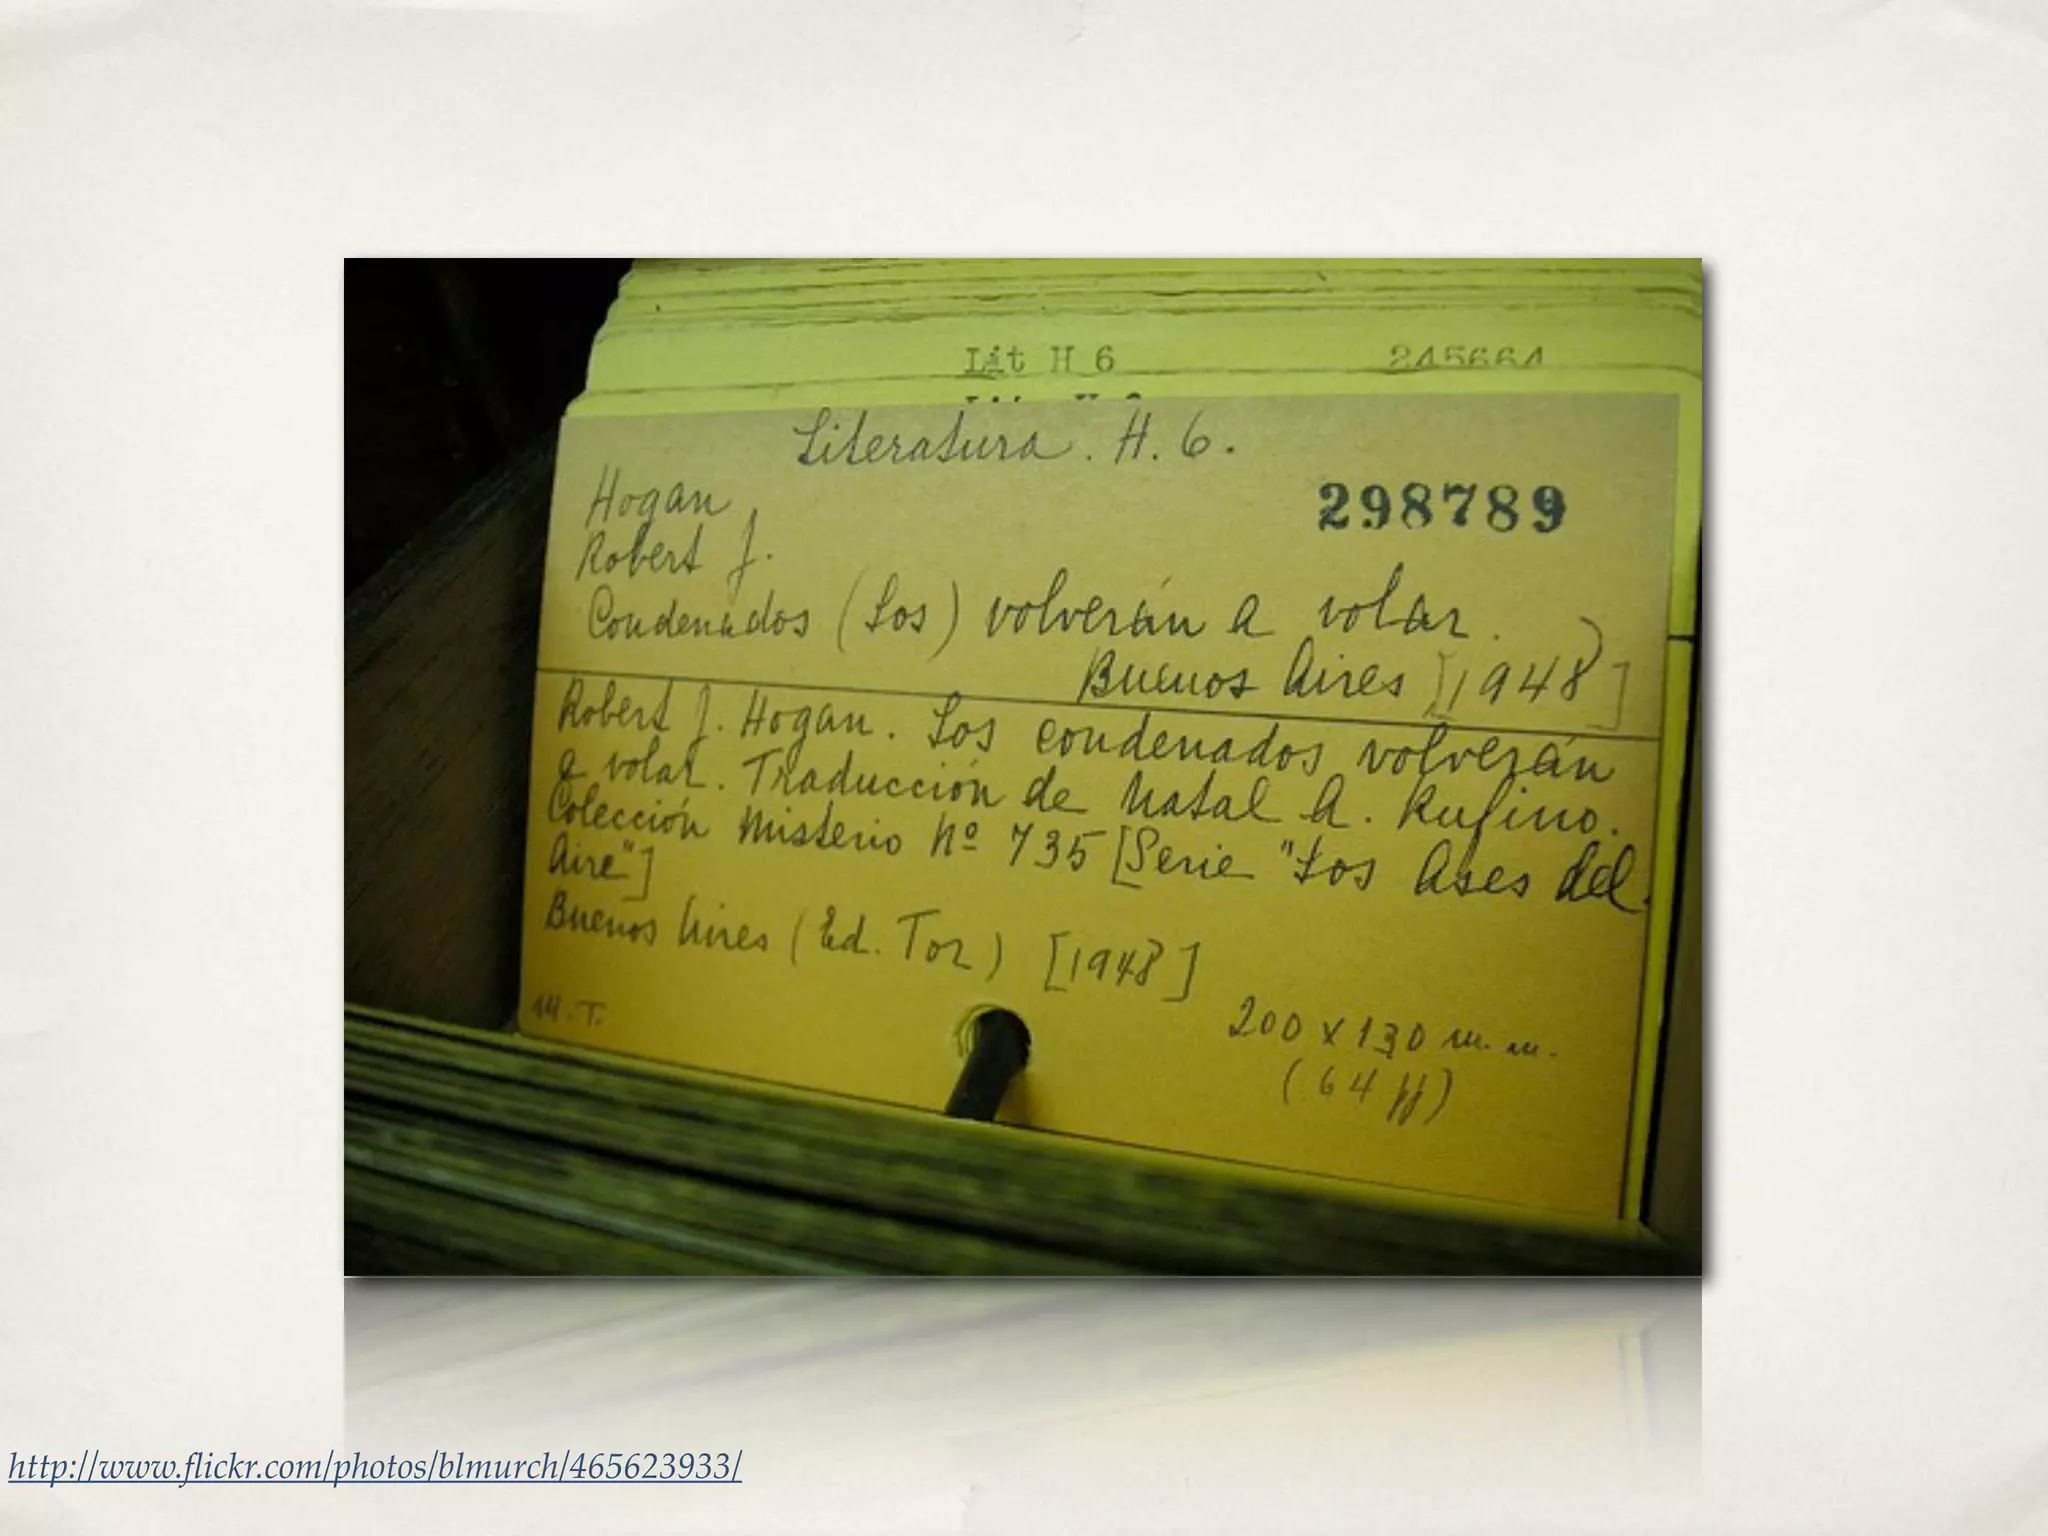 Lit H 6 245664
Literatura. H. 6.
298789
Hogan
Robert J.
Condenados (Los) volverán a volar.
Buenos Aires [1948]
Robert J. Hogan. Los condenados volverán
a volar. Traducción de Natal A. Rufino.
Colección Misterio Nº 735 [Serie "Los Ases del
Aire"]
Buenos Aires (Ed. Tor) [1948]
M.T.
200 x 130 m.m.
(64 pp)
http://www.flickr.com/photos/blmurch/465623933/